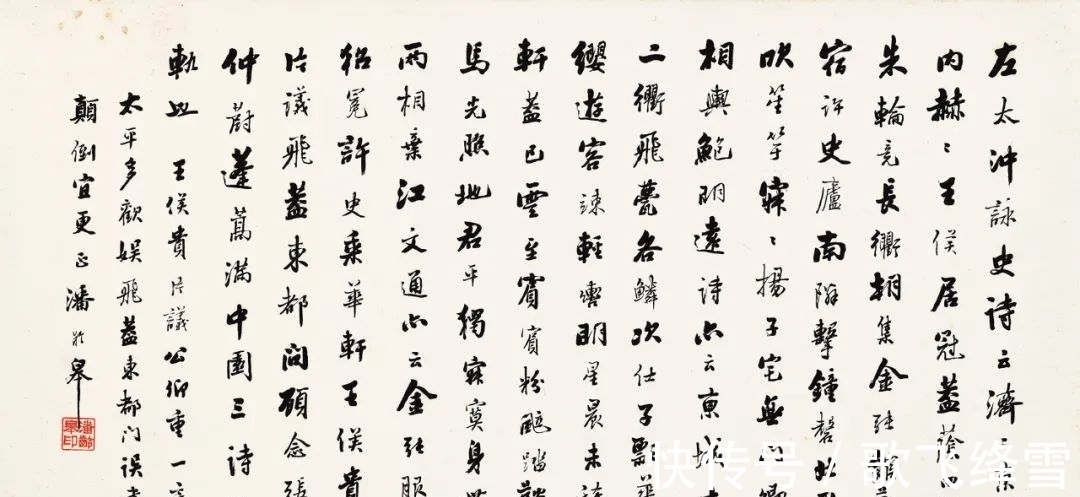 左太沖詠史詩云濟〻京
内赫〻王侯居冠盖蔭
朱輪竞長衢朝集金張
宿許史廬南隣擊鍾磬北
吹笙竽寂〻揚子宅無
相輿鮑明遠詩亦云京城
二衢飛甍各鱗次仕子飄華
纓遊客竦輕轡明星晨未
軒盖已雲至賓賓粉颭踏
馬光照地君平獨寂寞身世
兩相棄江文通亦云金張服
貂冕許史乘華軒王侯貴
片議飛盖東都門顧念張
仲蔚蓬蒿滿中園三詩
軌也 王侯貴片議公卿重一言
太平多歡娱飛盖東都门误
顛倒宜更正潘齡皋
潘齡皋印
快传号 / 歌飞绛雪